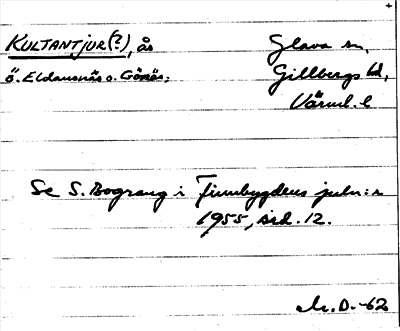 KULTANTJUR(?), ås
Glava sn,
ö. Eldansnäs o. Gönäs.
Gillbergs hd,
Värml. l
Se S. Bograng i Finnbygdens juln:r
1955, sid. 12.
D.-62